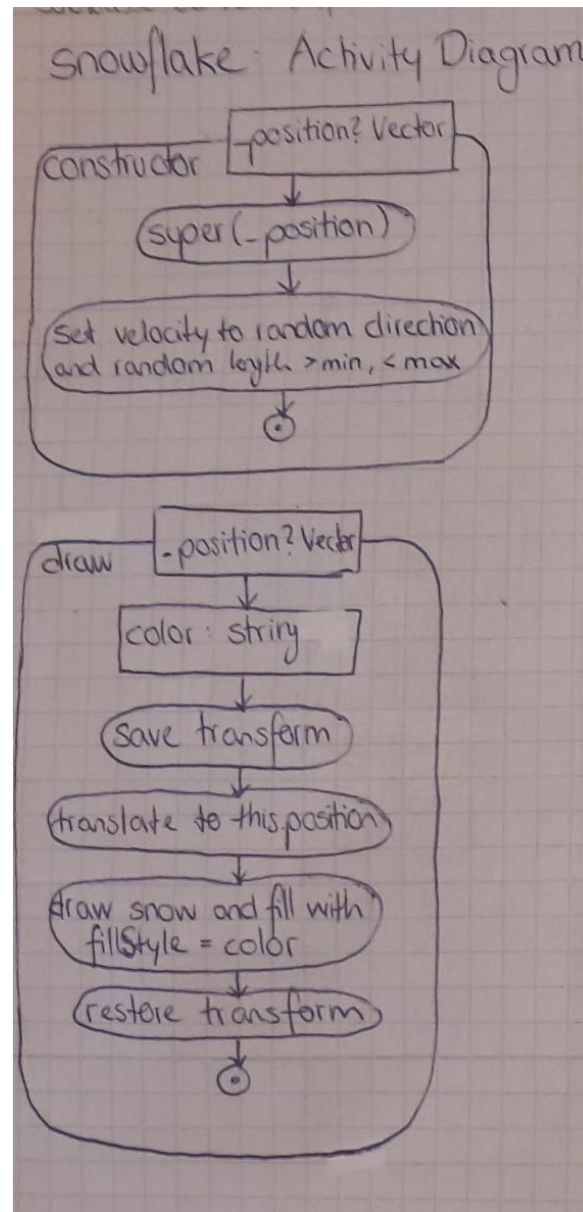 Snowflake: Activity Diagram
constructor
_position? Vector
super(_position)
set velocity to random direction
and random length >min, < max
draw
_position? Vector
color: string
save transform
translate to this.position
draw snow and fill with
fillStyle = color
restore transform